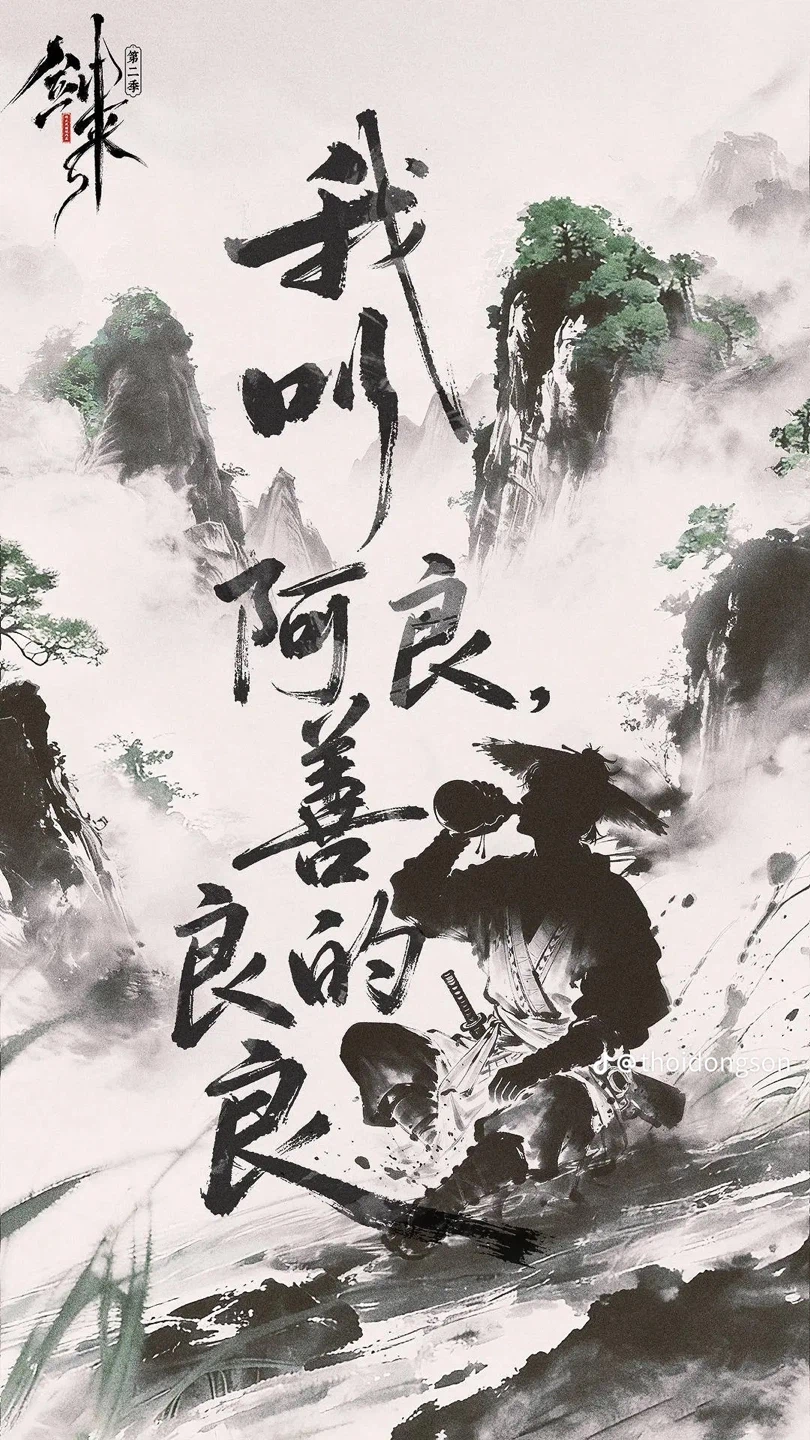 剑来
第二季
我叫
阿良,
善
良的
良
@thoidongson